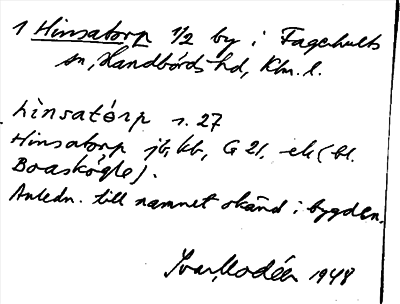 1 Hinsatorp 1/2 by i Fagerhults
sn, Handbörds hd, Klm. l.
hìnsatórp s. 27
Hinsatorp jb, kb, G 21, ek (bl.
Boaskögle).
Anledn. till namnet okänd i bygden.
Ivar Modéer 1948